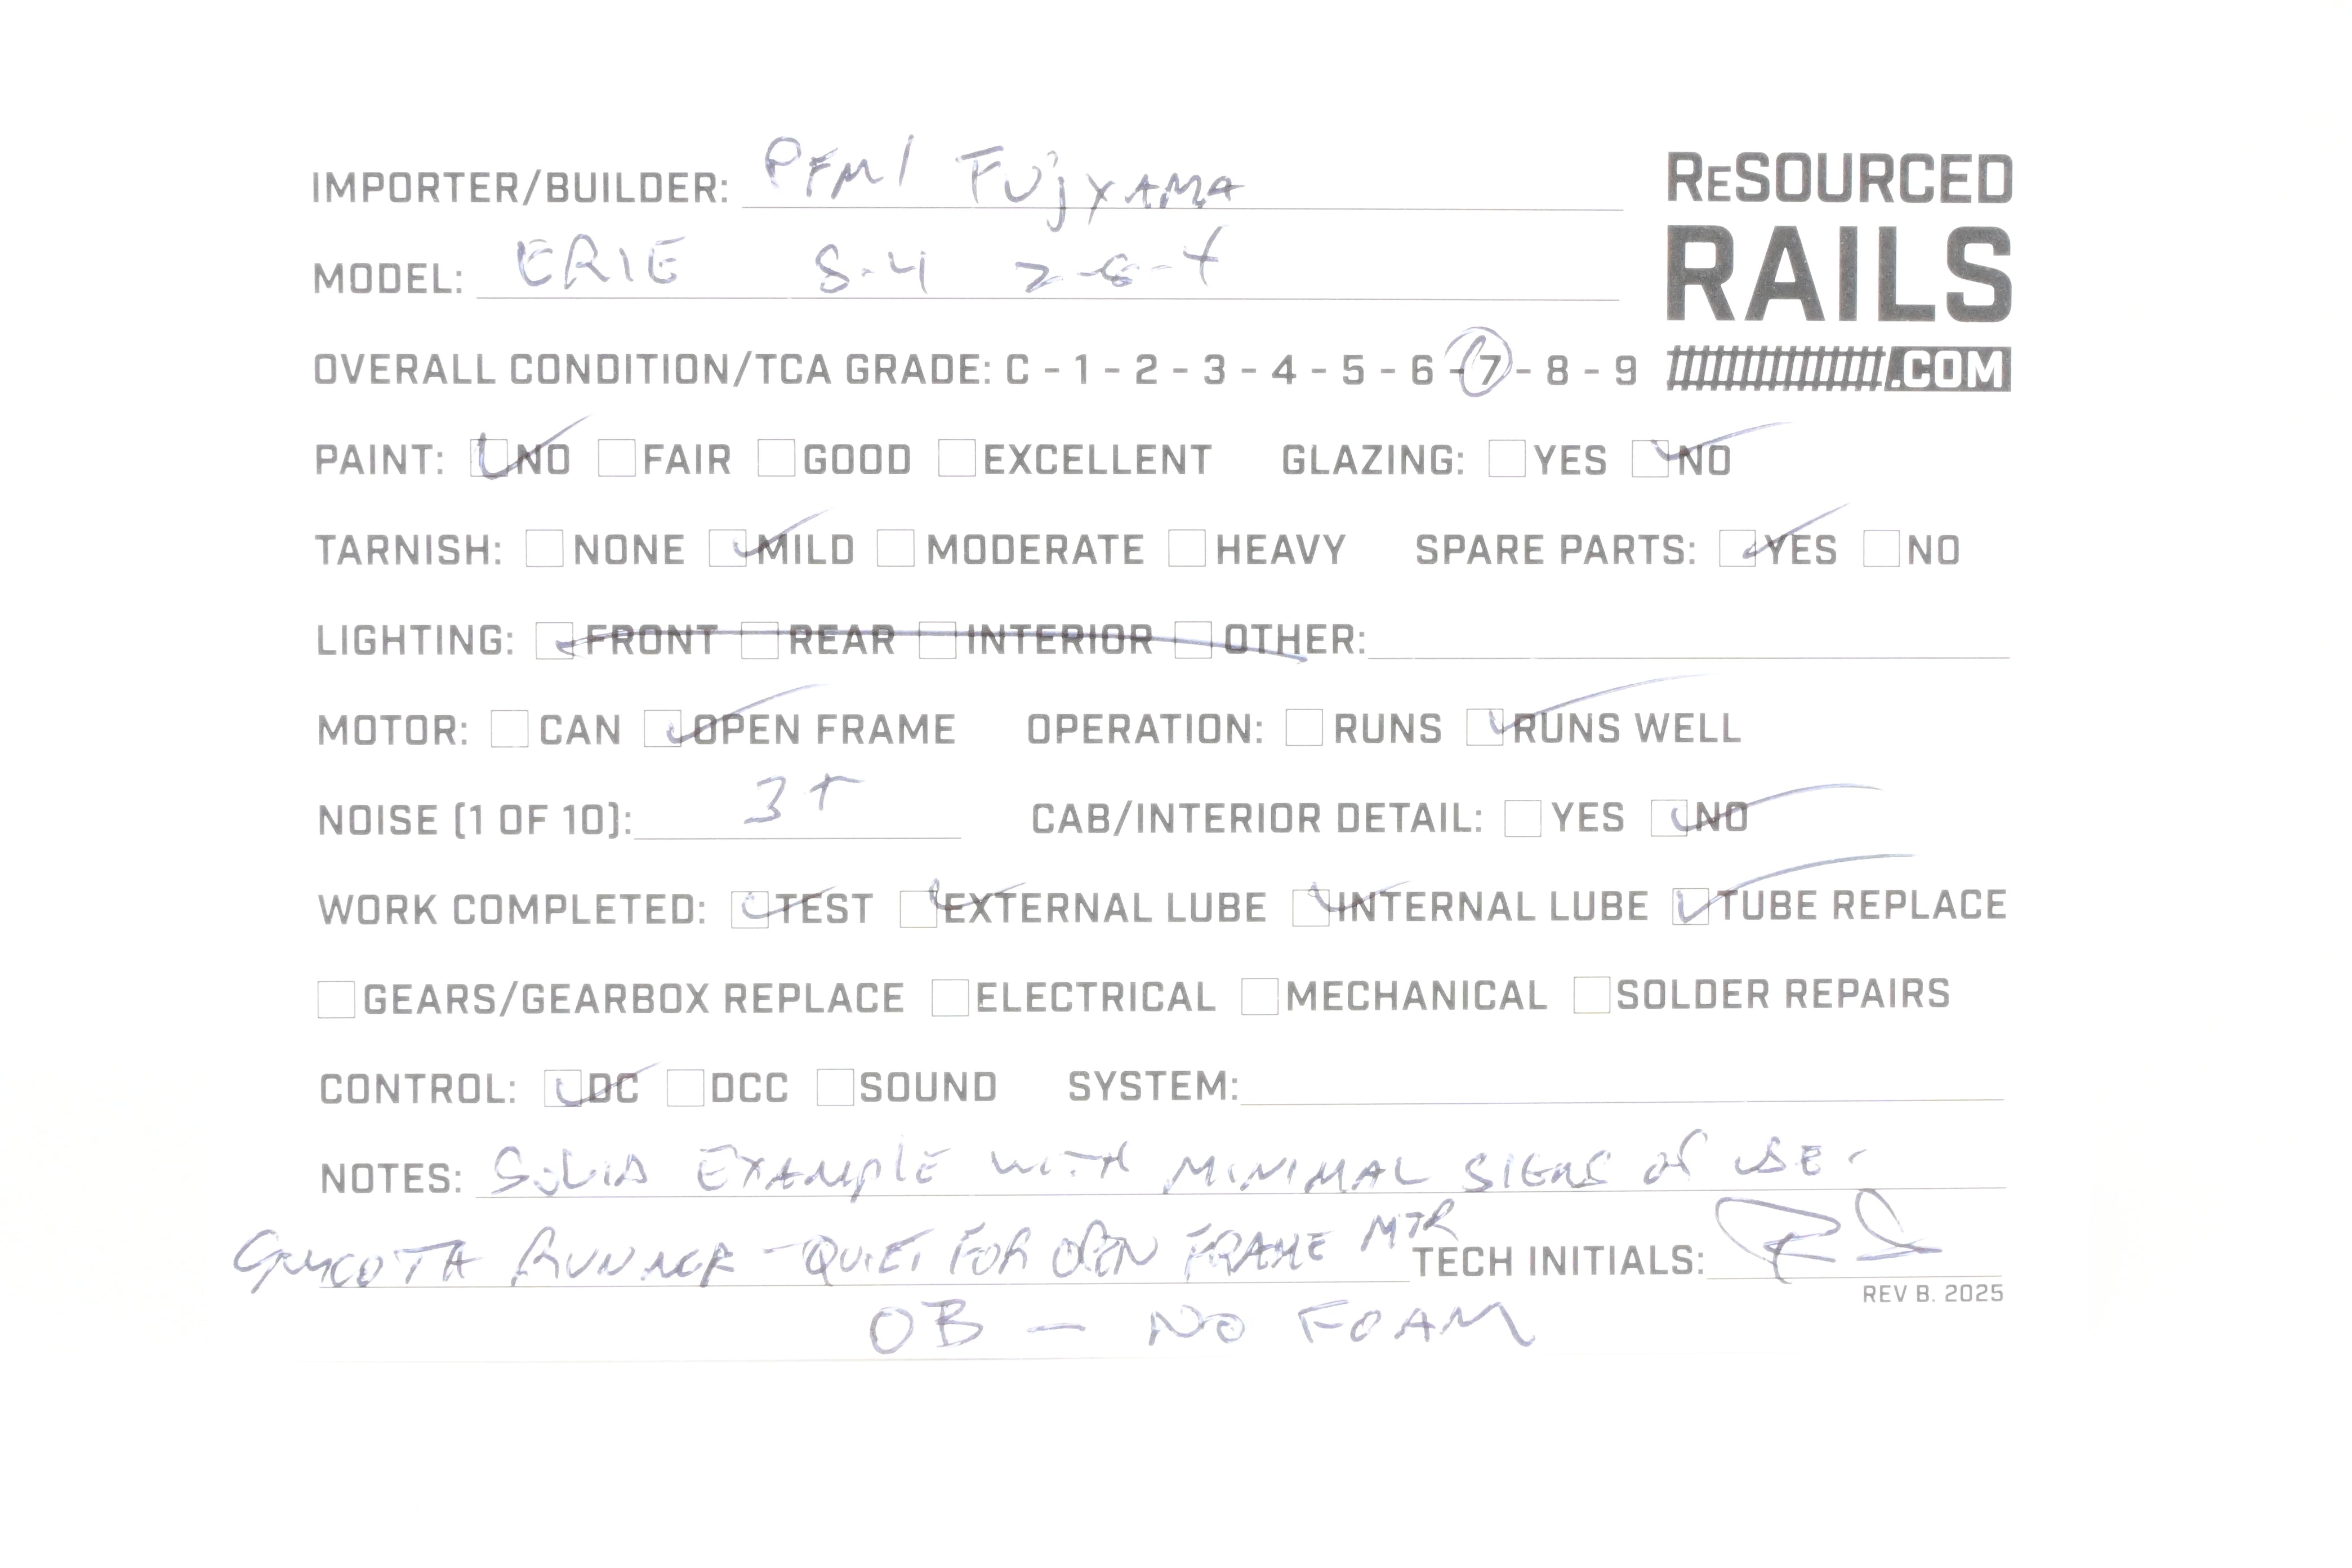 IMPORTER/BUILDER: PFM/ FUjYAMA
RESOURCED
RAILS
.COM
MODEL: ERIE S-4 2-8-4
OVERALL CONDITION/TCA GRADE: C - 1 - 2 - 3 - 4 - 5 - 6 - 7 - 8 - 9
PAINT: NO FAIR GOOD EXCELLENT GLAZING: YES NO
TARNISH: NONE MILD MODERATE HEAVY SPARE PARTS: YES NO
LIGHTING: FRONT REAR INTERIOR OTHER:
MOTOR: CAN OPEN FRAME OPERATION: RUNS RUNS WELL
NOISE (1 OF 10): 3+ CAB/INTERIOR DETAIL: YES NO
WORK COMPLETED: TEST EXTERNAL LUBE INTERNAL LUBE TUBE REPLACE
GEARS/GEARBOX REPLACE ELECTRICAL MECHANICAL SOLDER REPAIRS
CONTROL: DC DCC SOUND SYSTEM:
NOTES: SOLID EXAMPLE WITH MINIMAL SIGNS OF USE.
RUNNER - QUIET FOR OPEN FRAME MTR TECH INITIALS:
REV B. 2025
OB - NO FOAM